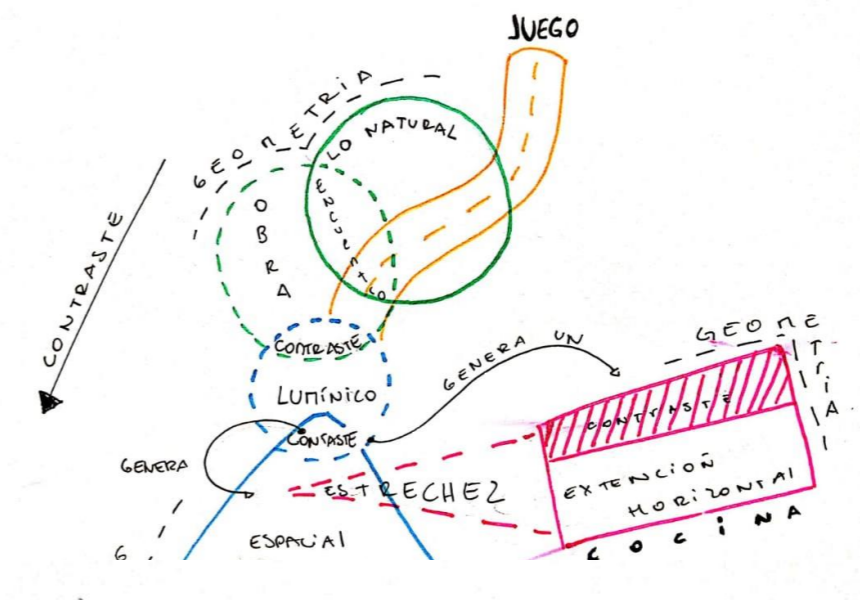 JUEGO
GEOMETRiA
LO NATURAL
ENCUENTRO
OBRA
CONTRASTE
CONTRASTE
LUMÍNICO
CONTASTE
GENERA UN
GENERA
ESTRECHEZ
ESPACIAl
GEOMETRiA
CONTRASTE
EXTENCIOÑ
HORIZONTAl
COCiNA
G